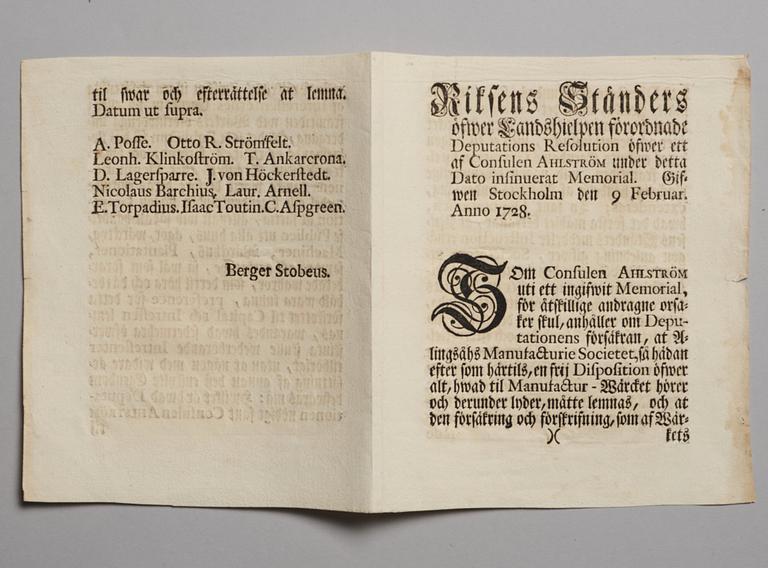 til swar och efterrättelse at lemna.
Datum ut supra.
A. Posse. Otto R. Strömfelt.
Leonh. Klinkoström. T. Ankarcrona.
D. Lagersparre. J. von Höckerstedt.
Nicolaus Barchius. Laur. Arnell.
E. Torpadius. Isaac Toutin. C. Aspgreen.
Berger Stobeus.
Riksens Ständers
öfwer Landshielpen förordnade
Deputations Resolution öfwer ett
af Consulen AHLSTRÖM under detta
Dato insinuerat Memorial. Gif-
wen Stockholm den 9 Februar.
Anno 1728.
SOm Consulen AHLSTRÖM
uti ett ingifwit Memorial,
för åtskillige andragne orsa-
ker skul, anhåller om Depu-
tationens försäkran, at A-
lingsåhs Manufacturie Societet, så hädan
efter som härtils, en frij Disposition öfwer
alt, hwad til Manufactur-Wärcket hörer
och derunder lyder, måtte lemnas, och at
den försäkring och förskrifning, som af Wär-
)( kets